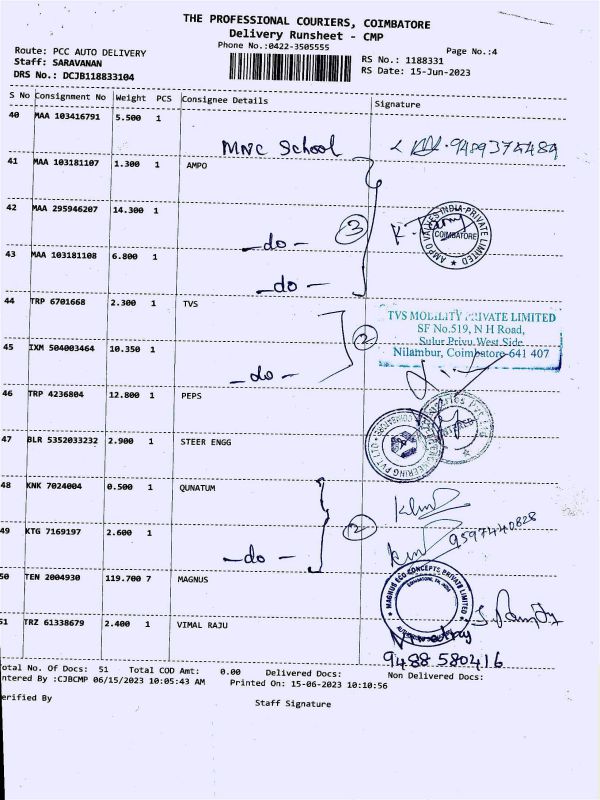 THE PROFESSIONAL COURIERS, COIMBATORE
Delivery Runsheet - CMP
Phone No.:0422-3505555
Page No.:4
Route: PCC AUTO DELIVERY
Staff: SARAVANAN
DRS No.: DCJB118833104
RS No.: 1188331
RS Date: 15-Jun-2023
S No Consignment No Weight PCS Consignee Details Signature
40 MAA 103416791 5.500 1
MNC School 9489374484
41 MAA 103181107 1.300 1 AMPO
42 MAA 295946207 14.300 1
-do- 3
AMPO VALVES INDIA PRIVATE LIMITED
COIMBATORE
43 MAA 103181108 6.800 1
-do-
44 TRP 6701668 2.300 1 TVS
TVS MOBILITY PRIVATE LIMITED
SF No.519, N H Road,
Sulur Privu West Side
Nilambur, Coimbatore-641 407
2
45 IXM 504003464 10.350 1
-do-
46 TRP 4236804 12.800 1 PEPS
47 BLR 5352033232 2.900 1 STEER ENGG
48 KNK 7024004 0.500 1 QUNATUM
49 KTG 7169197 2.600 1
-do- 2 9597440828
50 TEN 2004930 119.700 7 MAGNUS
MAGNUS ECO CONCEPTS PRIVATE LIMITED
51 TRZ 61338679 2.400 1 VIMAL RAJU
9488 580416
otal No. Of Docs: 51 Total COD Amt: 0.00 Delivered Docs: Non Delivered Docs:
ntered By :CJBCMP 06/15/2023 10:05:43 AM Printed On: 15-06-2023 10:10:56
erified By
Staff Signature